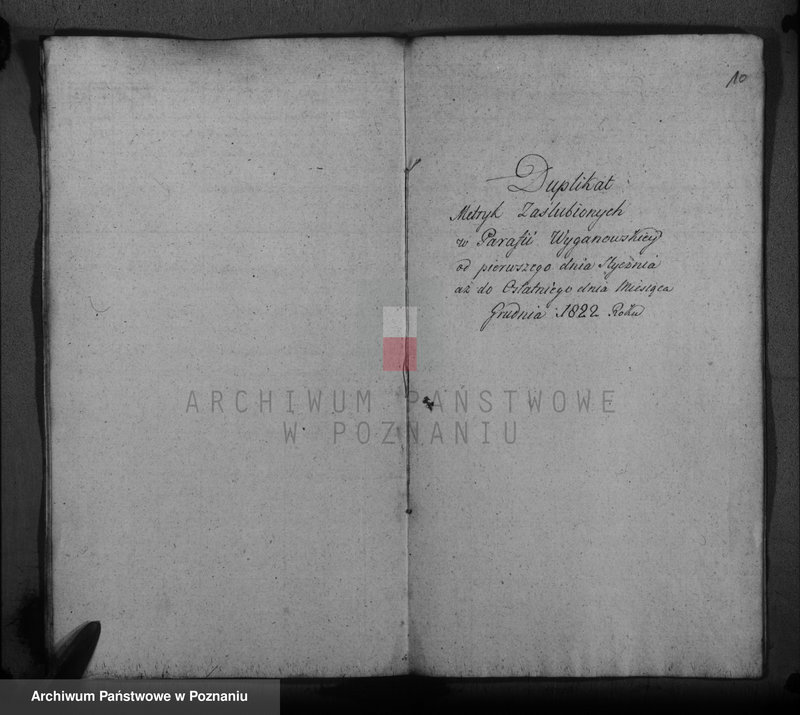 10
Duplikat
Metryk Zaślubionych
w Parafii Wyganowskiey
od pierwszego dnia Stycznia
aż do Ostatniego dnia Miesiąca
Grudnia 1822 Roku
ARCHIWUM PAŃSTWOWE
W POZNANIU
Archiwum Państwowe w Poznaniu